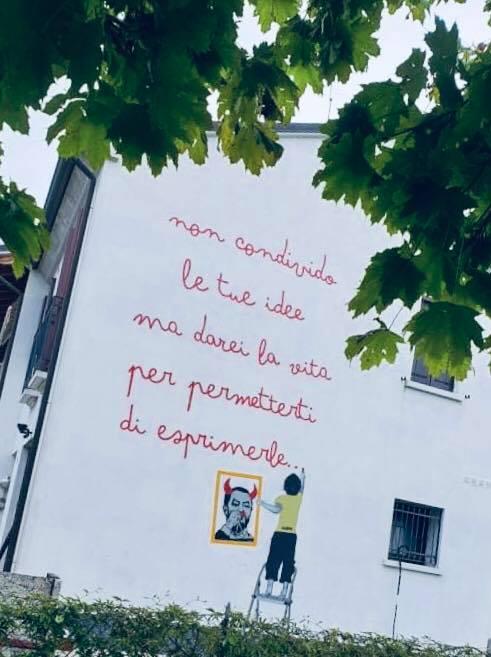 non condivido
le tue idee
ma darei la vita
per permetterti
di esprimerle...